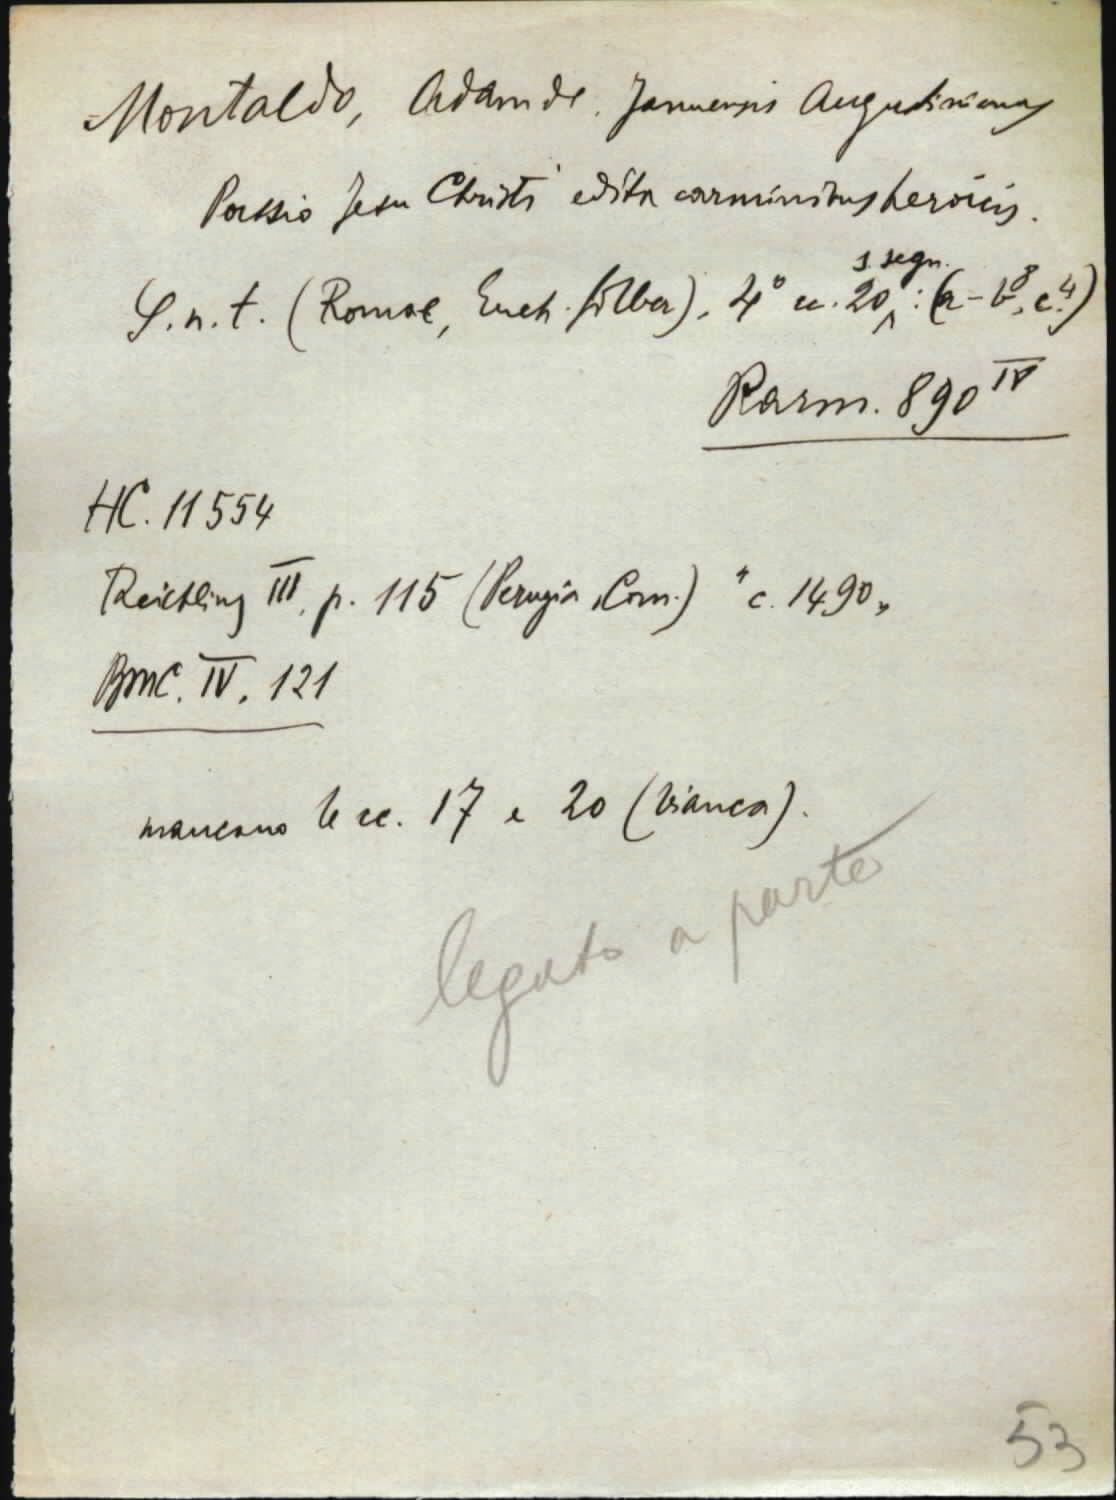 Montaldo, Adam de. Januensis Augustinianus
Passio Jesu Christi edita carminibus heroicis.
S.n.t. (Romae, Euch. Silber), 4° cc. 20 s. segn. : (a-b⁸, c⁴)
Rarm. 890 IV
HC. 11554
Reichling III, p. 115 (Perugia, Com.) "c. 1490„
BMC. IV. 121
mancano le cc. 17 e 20 (bianca).
legato a parte
53